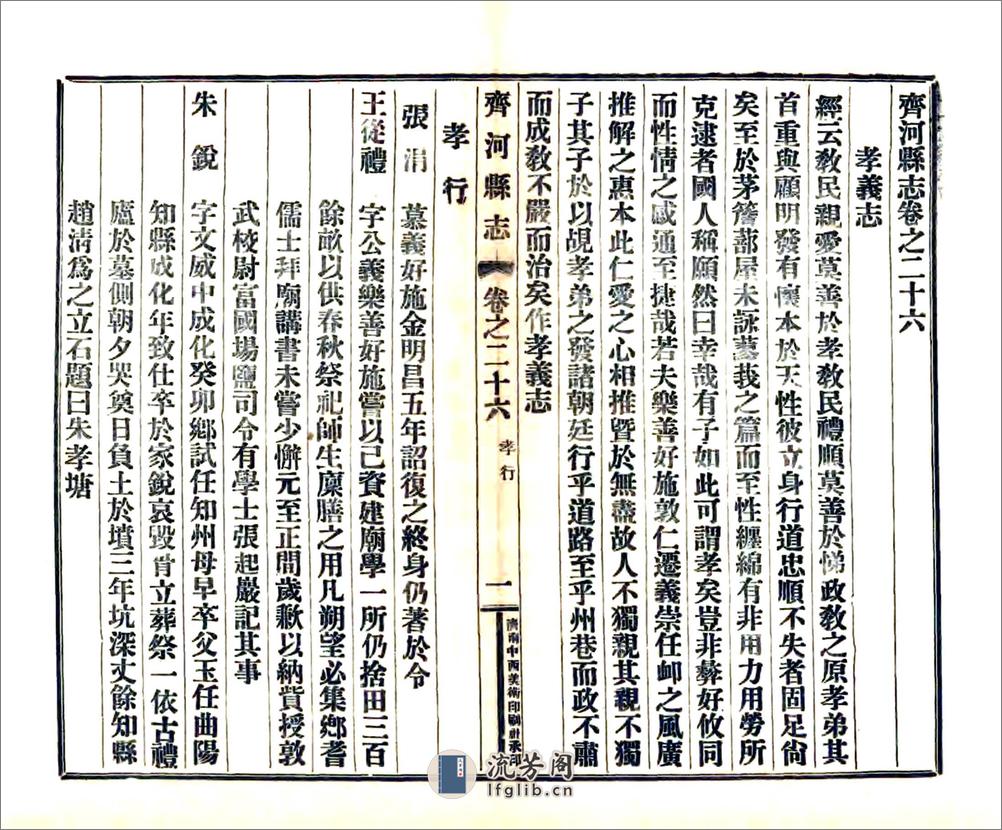 齊河縣志卷之二十六
孝義志
經云教民親愛莫善於孝教民禮順莫善於悌政教之原孝弟其
首重與顧明發有懷本於天性彼立身行道忠順不失者固足尚
矣至於茅簷蔀屋未詠蓼莪之篇而至性纏綿有非用力用勞所
克逮者國人稱願然曰幸哉有子如此可謂孝矣豈非彝好攸同
而性情之感通至捷哉若夫樂善好施敦仁遷義崇任卹之風廣
推解之惠本此仁愛之心相推暨於無盡故人不獨親其親不獨
子其子於以覘孝弟之發諸朝廷行乎道路至乎州巷而政不肅
而成教不嚴而治矣作孝義志
齊河縣志 卷之二十六 孝行 一 濟南中西美術印刷社承印
孝行
張涓 慕義好施金明昌五年詔復之終身仍著於令
王從禮 字公義樂善好施嘗以己資建廟學一所仍捨田三百
餘畝以供春秋祭祀師生廩膳之用凡朔望必集鄉耆
儒士拜廟講書未嘗少懈元至正間歲歉以納貲授敦
武校尉富國場鹽司令有學士張起巖記其事
朱銳 字文威中成化癸卯鄉試任知州母早卒父玉任曲陽
知縣成化年致仕卒於家銳哀毀骨立葬祭一依古禮
廬於墓側朝夕哭奠日負土於墳三年坑深丈餘知縣
趙清為之立石題曰朱孝塘
流芳阁
lfglib.cn